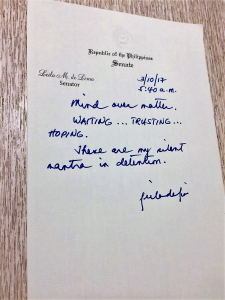 Republic of the Philippines
Senate
Leila M. de Lima
Senator
3/10/17
5:40 a.m.
Mind over matter.
WAITING... TRUSTING...
HOPING.
These are my silent
mantra in detention.